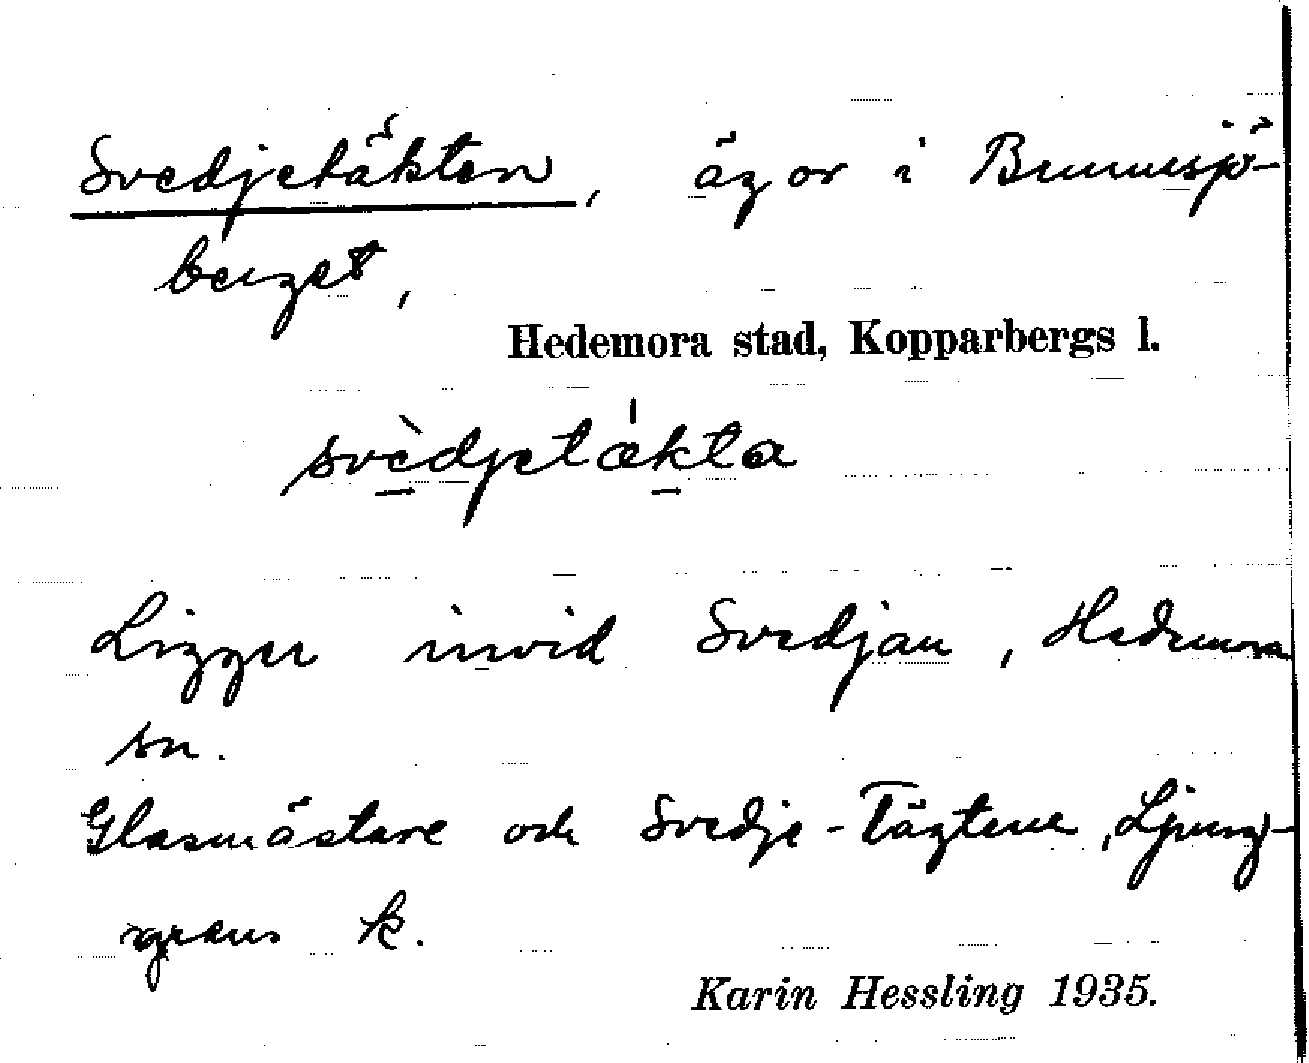 Svedjetäkten, ägor i Brunnsjö-
berget,
Hedemora stad, Kopparbergs l.
svèdjetǽkta
Ligger invid Svedjan, Hedemora
sn.
Glasmästare och Svedje-Tägtene, Ljung-
grens k.
Karin Hessling 1935.